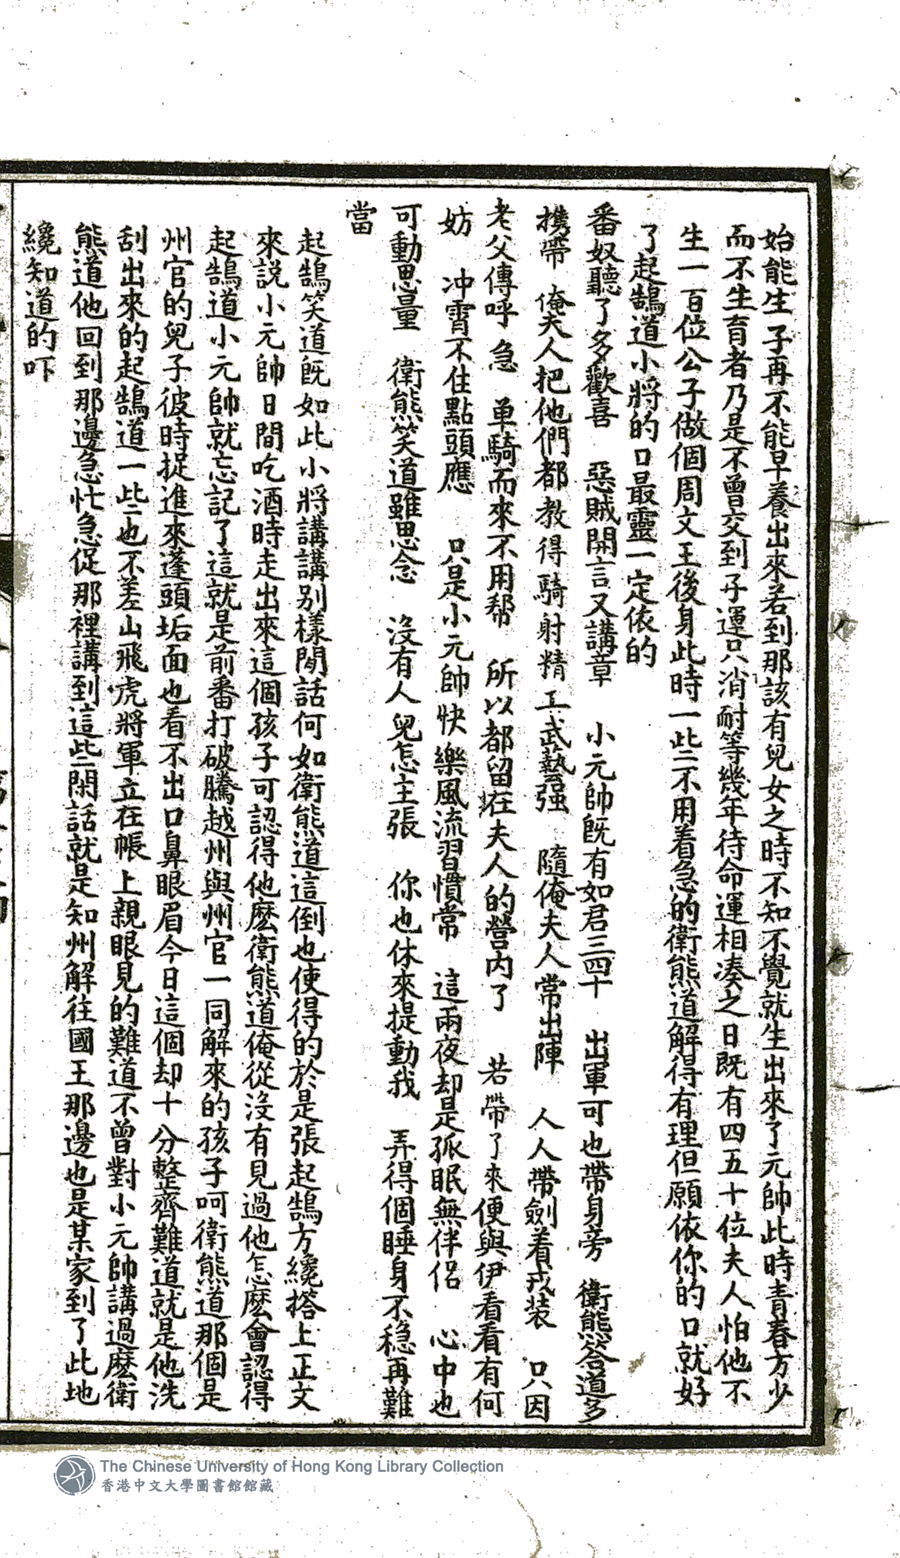 始能生子再不能早養出來若到那該有兒女之時不知不覺就生出來了元帥此時青春方少
而不生育者乃是不曾交到子運只消耐等幾年待命運相湊之日既有四五十位夫人怕他不
生一百位公子做個周文王後身此時一些不用着急的衛熊道解得有理但願依你的口就好
了起鵠道小將的口最靈一定依的
番奴聽了多歡喜 惡賊開言又講章 小元帥既有如君三四十 出軍可也帶身旁 衛熊答道多
攜帶 俺夫人把他們都教得騎射精工武藝強 隨俺夫人常出陣 人人帶劍着戎裝 只因
老父傳呼急 单騎而來不用帮 所以都留在夫人的營內了 若帶了來便與伊看看有何
妨 冲霄不住點頭應 只是小元帥快樂風流習慣常 這兩夜却是孤眠無伴侶 心中也
可動思量 衛熊笑道雖思念 沒有人兒怎主張 你也休來提動我 弄得個睡身不稳再難
當
起鵠笑道既如此小將講講別樣閒話何如衛熊道這倒也使得的於是張起鵠方纔搭上正文
來說小元帥日間吃酒時走出來這個孩子可認得他麽衛熊道俺從沒有見過他怎麽會認得
起鵠道小元帥就忘記了這就是前番打破騰越州與州官一同解來的孩子呵衛熊道那個是
州官的兒子彼時捉進來蓬頭垢面也看不出口鼻眼眉今日這個却十分整齊難道就是他洗
刮出來的起鵠道一些也不差山飛虎將軍立在帳上親眼見的難道不曾對小元帥講過麽衛
熊道他回到那邊急忙急促那裡講到這些閑話就是知州解往國王那邊也是某家到了此地
纔知道的吓
The Chinese University of Hong Kong Library Collection
香港中文大學圖書館館藏